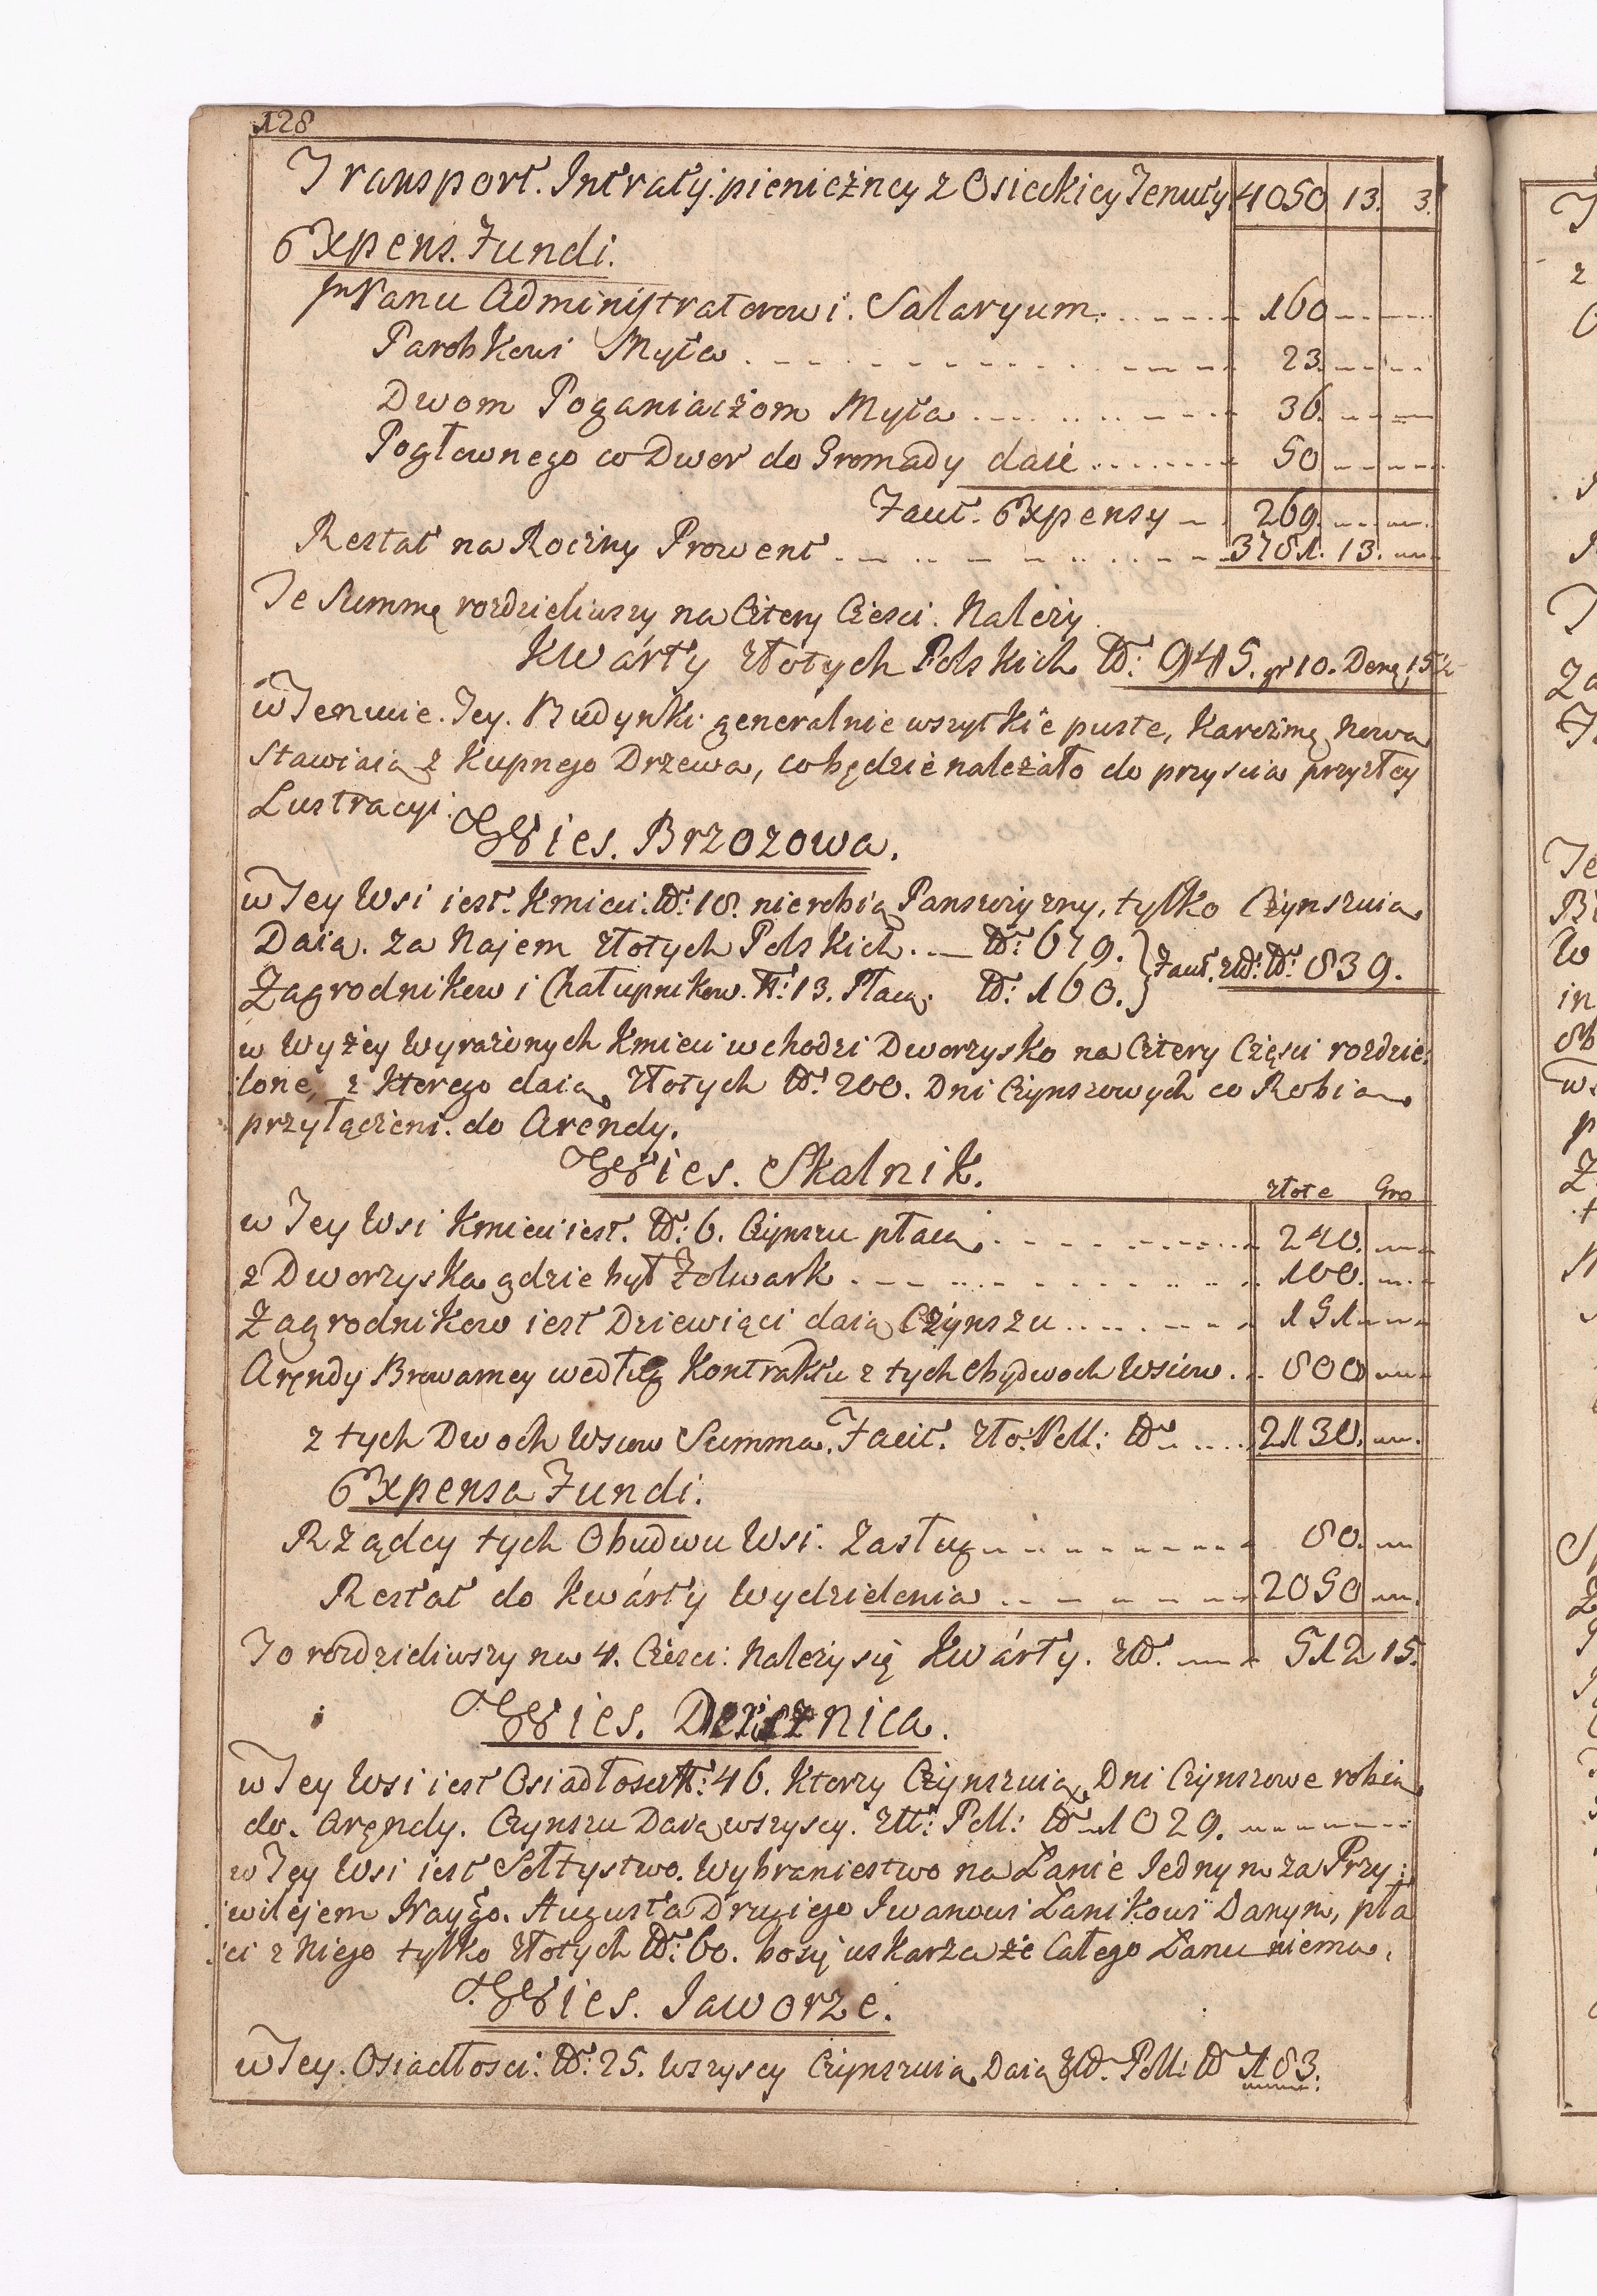 128
Transport. Intraty. pienieżney z Osieckiey Tenuty 4050 13. 3.
Expens. Fundi.
Panu Administratorowi. Salaryum. 160
Parobkowi Myta 23.
Dwom Poganiaczom Myta 36.
Pogłownego co Dwor do Gromady daie 50
Facit. Expensy 269.
Restat na Roczny Prowent 3781. 13.
Te Summę rozdzieliwszy na Cztery Cięsci. Należy.
Kwárty złotych Polskich No: 945. gr 10. Dena: 15
w Tenucie. Tey. Budynki generalnie wszytkie puste, Karczmę Nową
Stawiaią z Kupnego Drzewa, co będzie należało do przyscia przyszłey
Lustracyi.
Wies. Brzozowa.
w Tey Wsi iest. Kmieci. No: 18. nierobią Panszczyzny, tylko Czynszuią
Daią. za Najem złotych Polskich. No: 679.
Facit. zło: No: 839.
Zagrodnikow i Chałupnikow. No: 13. Płacą. No: 160.
w Wyżey Wyrażonych Kmieci wchodzi Dworzysko na Cztery Częsci rozdzie:
lone, z ktorego daią złotych No: 200. Dni Czynszowych co Robią
przyłączeni. do Arendy.
Wies. Skalnik.
złote Gro
w Tey Wsi Kmieci iest. No: 6. Czynszu płacą. 240.
z Dworzyska gdzie był Folwark 100.
Zagrodnikow iest Dziewiąci daią Czynszu 151
Arendy Browarney według Kontraktu z tych Obydwoch Wsiow. 800
z tych Dwoch Wsiow Summa. Facit. Zło: Poll: No 2130.
Expensa Fundi.
Rządcy tych Obudwu Wsi. Zasług 80.
Restat do Kwárty Wydzielenia 2050
To rozdzieliwszy na 4. Częsci: Należy się Kwárty. Zło. 512 15.
Wies. Dzieznica.
w Tey Wsi iest Osiadłosci No: 46. Ktorzy Czynszuią, Dni Czynszowe robią
do. Arędy. Czynszu Daią wszyscy. Zll: Poll: No 1029.
w Tey Wsi iest Sołtystwo. Wybraniestwo na Łanie Jednym za Przy:
wilejem Nayśo. Augusta Drugiego Iwanowi Łanikowi Danym, pła
ci z Niego tylko złotych No: 60. bo się uskarza że Całego Łanu niema.
Wies. Jaworze.
w Tey. Osiadłosci: No: 25. Wszyscy Czynszuią Daią Zło. Poll: No 783.